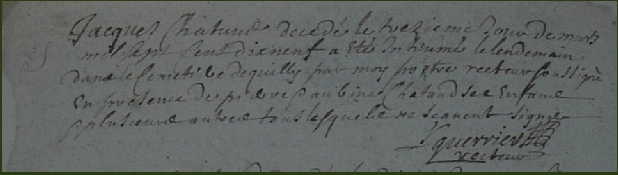 Jacques Chataud decedés le trezieme jour de mars
mil sept cent dixneuf a esté Inhumé le lendemain
dans le cemetiere de quilly par moy prestre recteur soussigné
En presence de pierre aubine Chataud ses Enfans
& plusieurs autres tous lesquels ne scavent signer
recteur